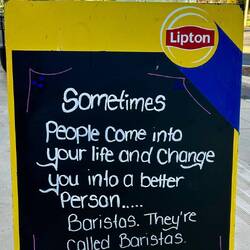 Lipton
Sometimes
People come into
your life and change
you into a better
Person.....
Baristas. They're
called Baristas.